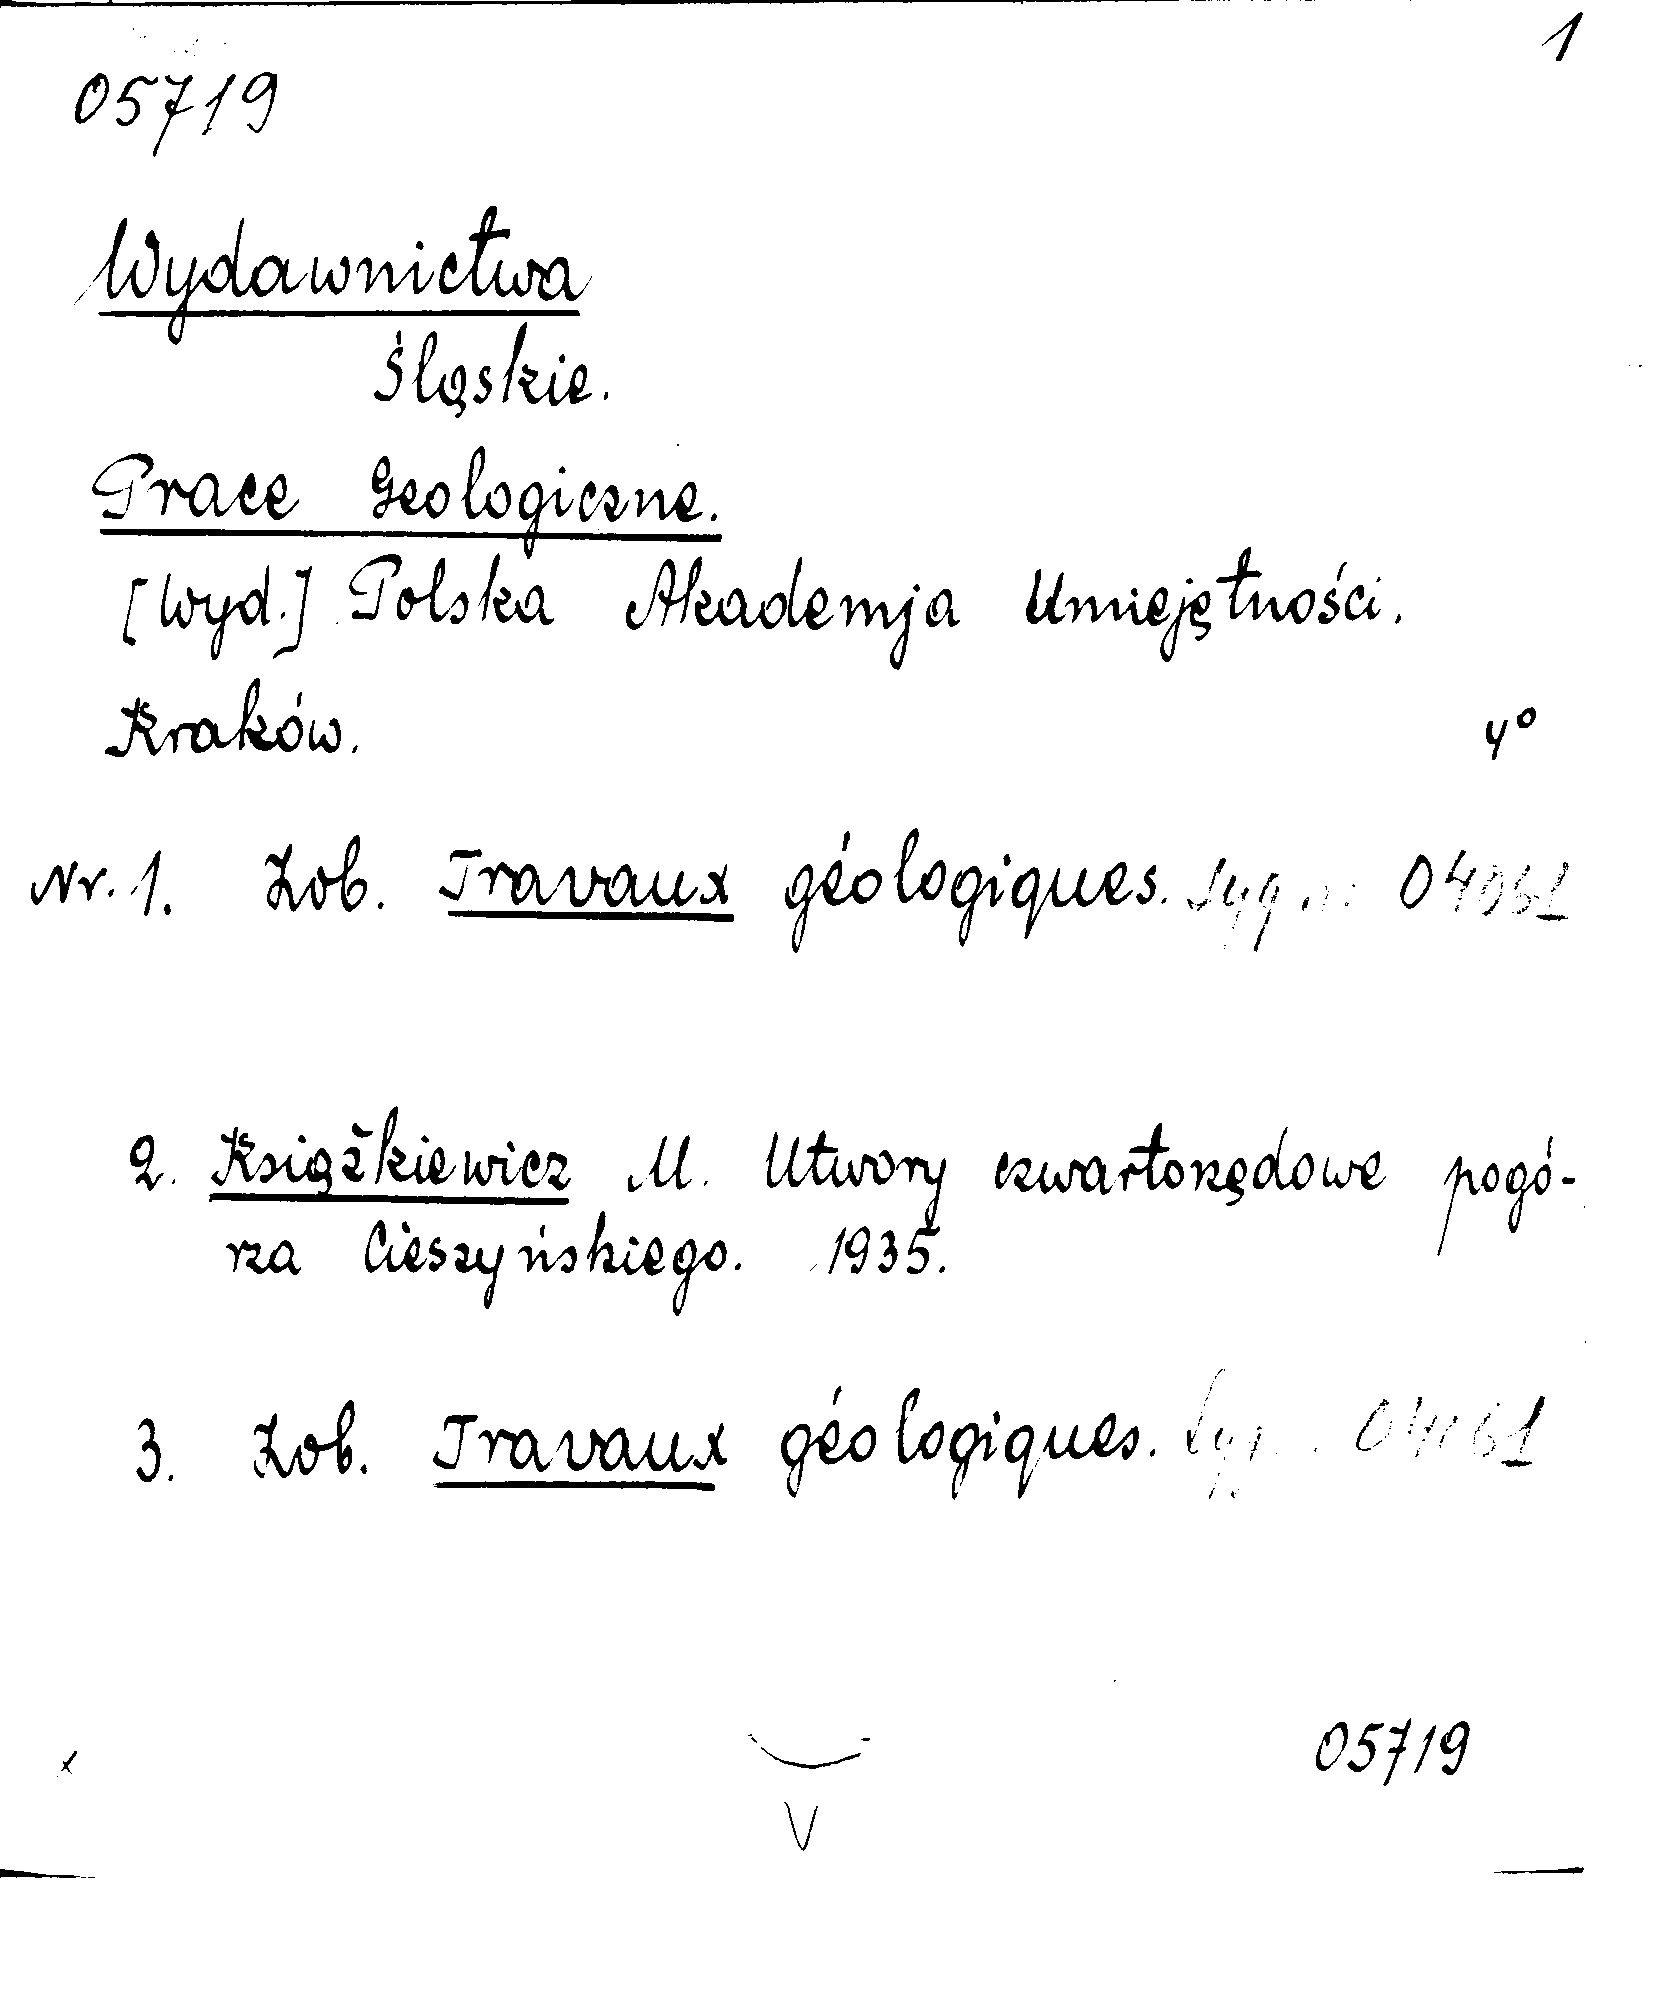 1
05719
Wydawnictwa
Śląskie.
Prace Geologiczne.
[Wyd.] Polska Akademja Umiejętności.
Kraków. 4°
Nr. 1. Zob. Travaux géologiques.
2. Książkiewicz M. Utwory czwartorzędowe pogó-
rza Cieszyńskiego. 1935.
3. Zob. Travaux géologiques.
05719